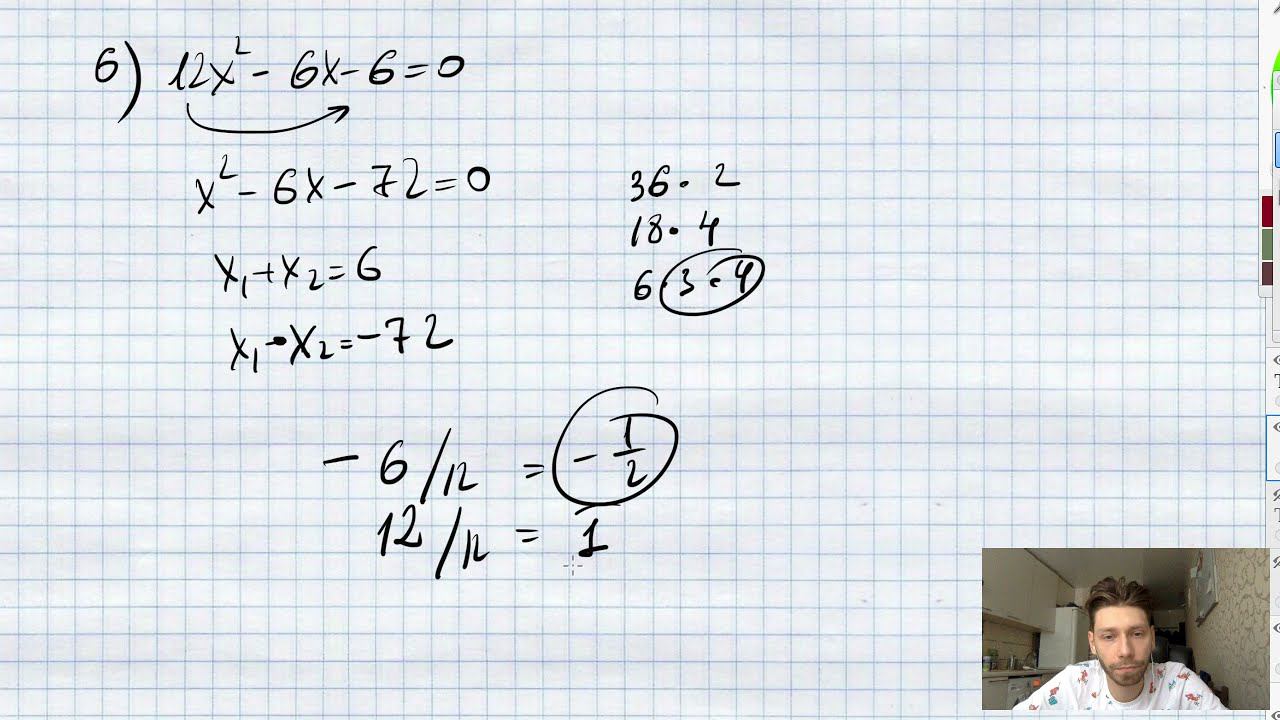 6) 12x² - 6x - 6 = 0
x² - 6x - 72 = 0
x₁ + x₂ = 6
x₁ · x₂ = -72
36 · 2
18 · 4
6 · 3 · 4
- 6/12 = - 1/2
12/12 = 1